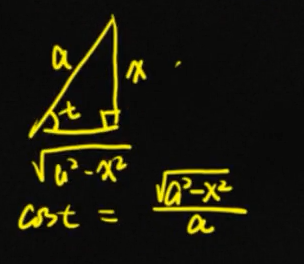 a
x
t
√a²-x²
cost = √a²-x² / a